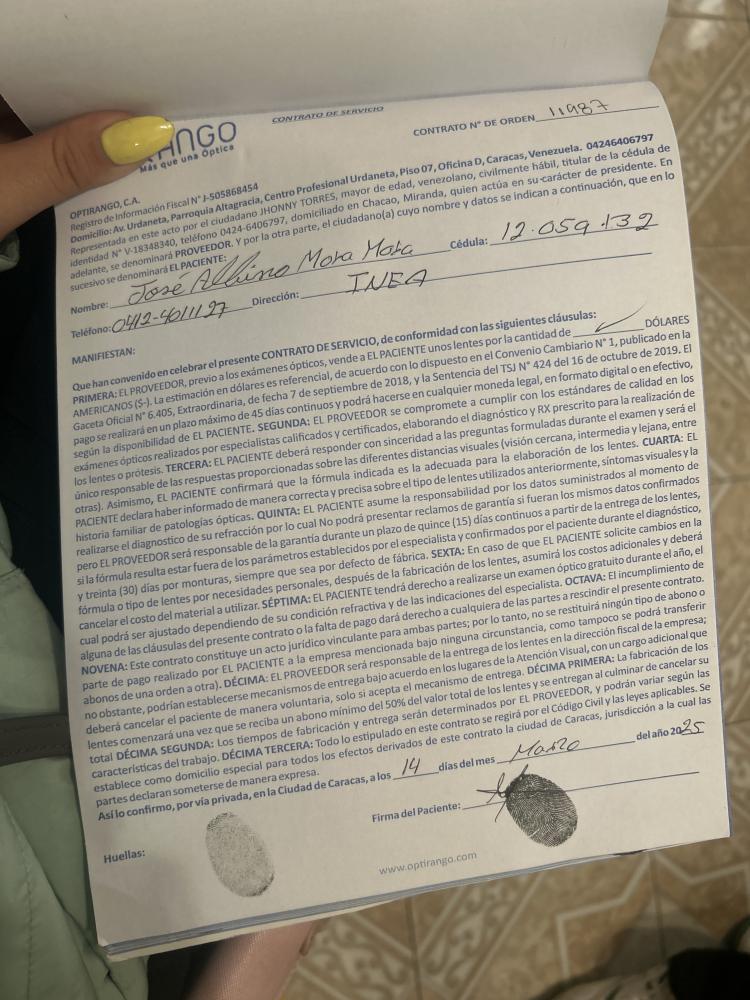 CONTRATO DE SERVICIO
ANGO
Más que una Óptica
CONTRATO N° DE ORDEN 11987
OPTIRANGO, C.A.
Registro de Información Fiscal N° J-505868454
Domicilio: Av. Urdaneta, Parroquia Altagracia, Centro Profesional Urdaneta, Piso 07, Oficina D, Caracas, Venezuela. 04246406797
Representada en este acto por el ciudadano JHONNY TORRES, mayor de edad, venezolano, civilmente hábil, titular de la cédula de
identidad N° V-18348340, teléfono 0424-6406797, domiciliado en Chacao, Miranda, quien actúa en su carácter de presidente. En
adelante, se denominará PROVEEDOR. Y por la otra parte, el ciudadano(a) cuyo nombre y datos se indican a continuación, que en lo
sucesivo se denominará EL PACIENTE:
Nombre: José Albino Mora Mora Cédula: 12.059.132
Teléfono: 0412-4011127 Dirección: INEA
MANIFIESTAN:
Que han convenido en celebrar el presente CONTRATO DE SERVICIO, de conformidad con las siguientes cláusulas:
PRIMERA: EL PROVEEDOR, previo a los exámenes ópticos, vende a EL PACIENTE unos lentes por la cantidad de DÓLARES
AMERICANOS ($-). La estimación en dólares es referencial, de acuerdo con lo dispuesto en el Convenio Cambiario N° 1, publicado en la
Gaceta Oficial N° 6.405, Extraordinaria, de fecha 7 de septiembre de 2018, y la Sentencia del TSJ N° 424 del 16 de octubre de 2019. El
pago se realizará en un plazo máximo de 45 días continuos y podrá hacerse en cualquier moneda legal, en formato digital o en efectivo,
según la disponibilidad de EL PACIENTE. SEGUNDA: EL PROVEEDOR se compromete a cumplir con los estándares de calidad en los
exámenes ópticos realizados por especialistas calificados y certificados, elaborando el diagnóstico y RX prescrito para la realización de
los lentes o prótesis. TERCERA: EL PACIENTE deberá responder con sinceridad a las preguntas formuladas durante el examen y será el
único responsable de las respuestas proporcionadas sobre las diferentes distancias visuales (visión cercana, intermedia y lejana, entre
otras). Asimismo, EL PACIENTE confirmará que la fórmula indicada es la adecuada para la elaboración de los lentes. CUARTA: EL
PACIENTE declara haber informado de manera correcta y precisa sobre el tipo de lentes utilizados anteriormente, síntomas visuales y la
historia familiar de patologías ópticas. QUINTA: EL PACIENTE asume la responsabilidad por los datos suministrados al momento de
realizarse el diagnostico de su refracción por lo cual No podrá presentar reclamos de garantía si fueran los mismos datos confirmados
pero EL PROVEEDOR será responsable de la garantía durante un plazo de quince (15) días continuos a partir de la entrega de los lentes,
si la fórmula resulta estar fuera de los parámetros establecidos por el especialista y confirmados por el paciente durante el diagnóstico,
y treinta (30) días por monturas, siempre que sea por defecto de fábrica. SEXTA: En caso de que EL PACIENTE solicite cambios en la
fórmula o tipo de lentes por necesidades personales, después de la fabricación de los lentes, asumirá los costos adicionales y deberá
cancelar el costo del material a utilizar. SÉPTIMA: EL PACIENTE tendrá derecho a realizarse un examen óptico gratuito durante el año, el
cual podrá ser ajustado dependiendo de su condición refractiva y de las indicaciones del especialista. OCTAVA: El incumplimiento de
alguna de las cláusulas del presente contrato o la falta de pago dará derecho a cualquiera de las partes a rescindir el presente contrato.
NOVENA: Este contrato constituye un acto jurídico vinculante para ambas partes; por lo tanto, no se restituirá ningún tipo de abono o
parte de pago realizado por EL PACIENTE a la empresa mencionada bajo ninguna circunstancia, como tampoco se podrá transferir
abonos de una orden a otra). DÉCIMA: EL PROVEEDOR será responsable de la entrega de los lentes en la dirección fiscal de la empresa;
no obstante, podrían establecerse mecanismos de entrega bajo acuerdo en los lugares de la Atención Visual, con un cargo adicional que
deberá cancelar el paciente de manera voluntaria, solo si acepta el mecanismo de entrega. DÉCIMA PRIMERA: La fabricación de los
lentes comenzará una vez que se reciba un abono mínimo del 50% del valor total de los lentes y se entregan al culminar de cancelar su
total DÉCIMA SEGUNDA: Los tiempos de fabricación y entrega serán determinados por EL PROVEEDOR, y podrán variar según las
características del trabajo. DÉCIMA TERCERA: Todo lo estipulado en este contrato se regirá por el Código Civil y las leyes aplicables. Se
establece como domicilio especial para todos los efectos derivados de este contrato la ciudad de Caracas, jurisdicción a la cual las
partes declaran someterse de manera expresa.
Así lo confirmo, por vía privada, en la Ciudad de Caracas, a los 14 días del mes Marzo del año 2025
Firma del Paciente:
Huellas:
www.optirango.com